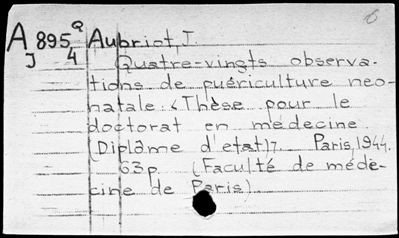 A 895 Q Aubriot, J.
J 4 Quatre-vingts observa-
tions de puériculture neo-
natale. <Thèse pour le
doctorat en médecine.
(Diplôme d'etat)7. Paris, 1944.
63p. (Faculté de méde-
cine de Paris).